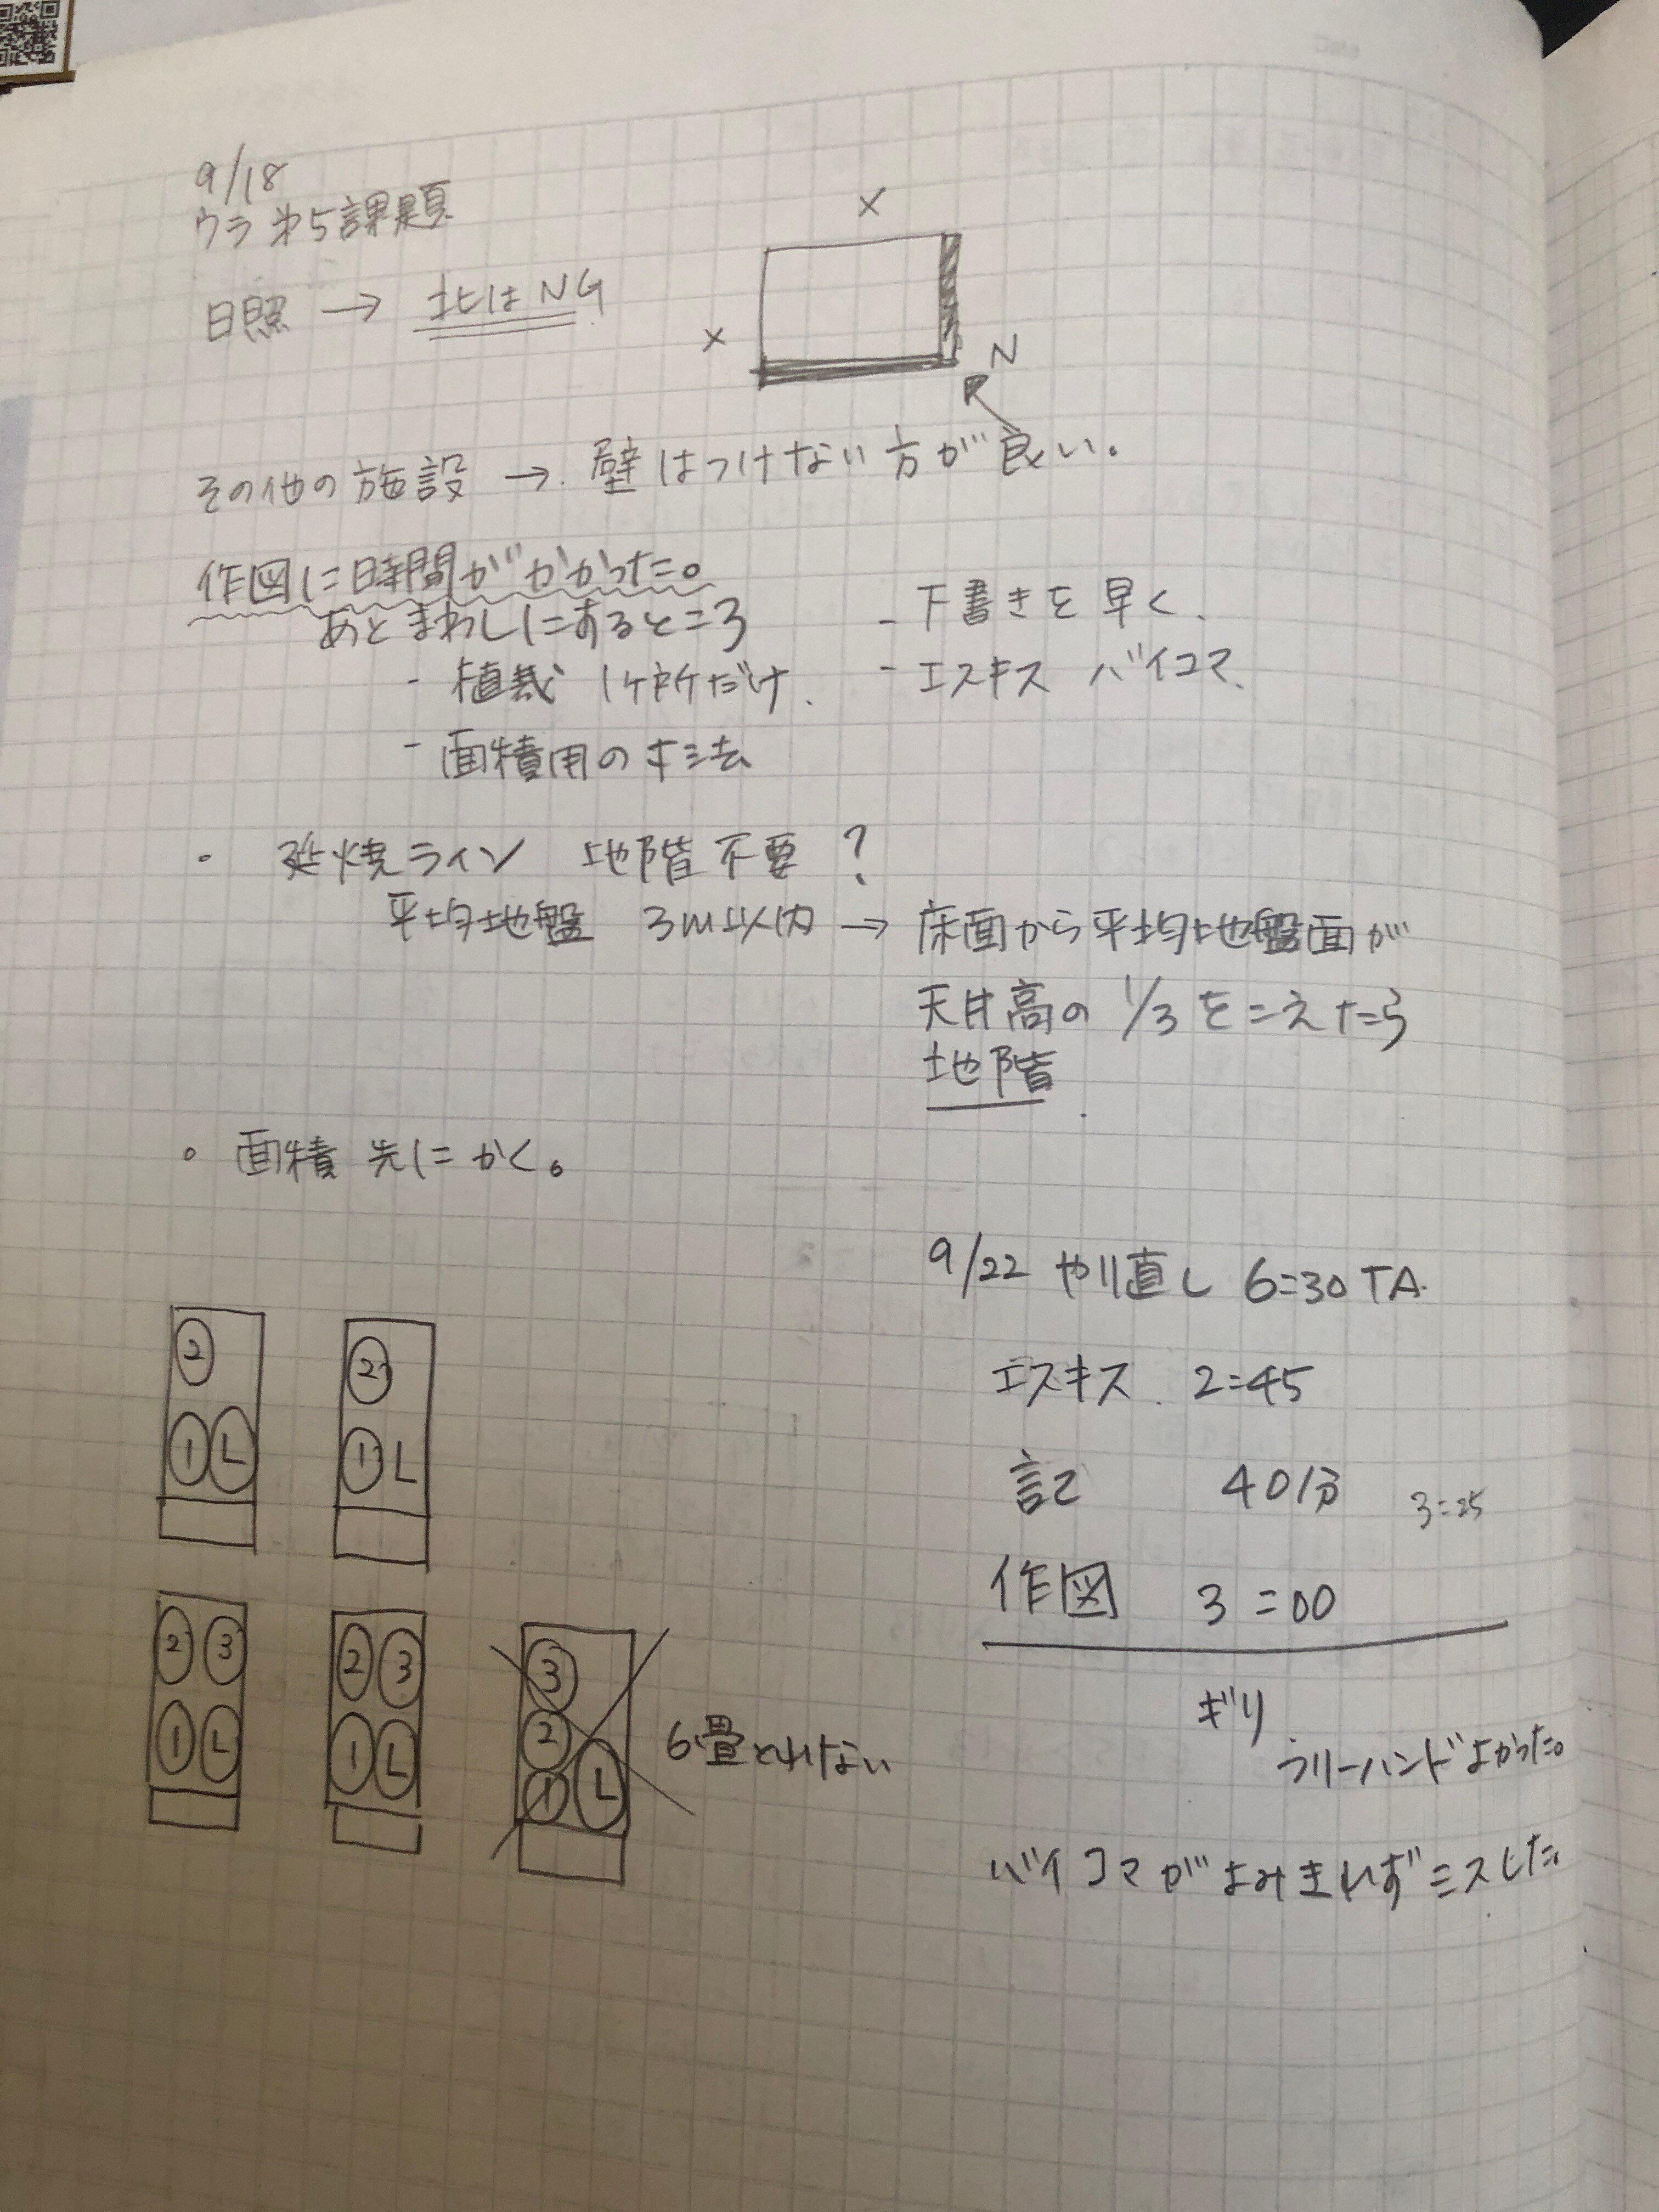 9/18
ウラ 第5課題
日照 → 北はNG
X
X
N
その他の施設 → 壁はつけない方が良い。
作図に時間がかかった。
あとまわしにするところ
- 植栽 1ヶ所だけ.
- 面積用の寸法
- 下書きを早く.
- エスキス バイコマ.
。 延焼ライン 地階不要?
平均地盤 3m以内 → 床面から平均地盤面が
天井高の 1/3 をこえたら
地階
。面積 先にかく。
9/22 やり直し 6=30 TA.
エスキス 2=45
記 40分 3=25
作図 3=00
ギリ
フリーハンドよかった。
バイコマがよみきれずミスした
2
1 L
2
1 L
2 3
1 L
2 3
1 L
3
2
1 L
6畳とれない